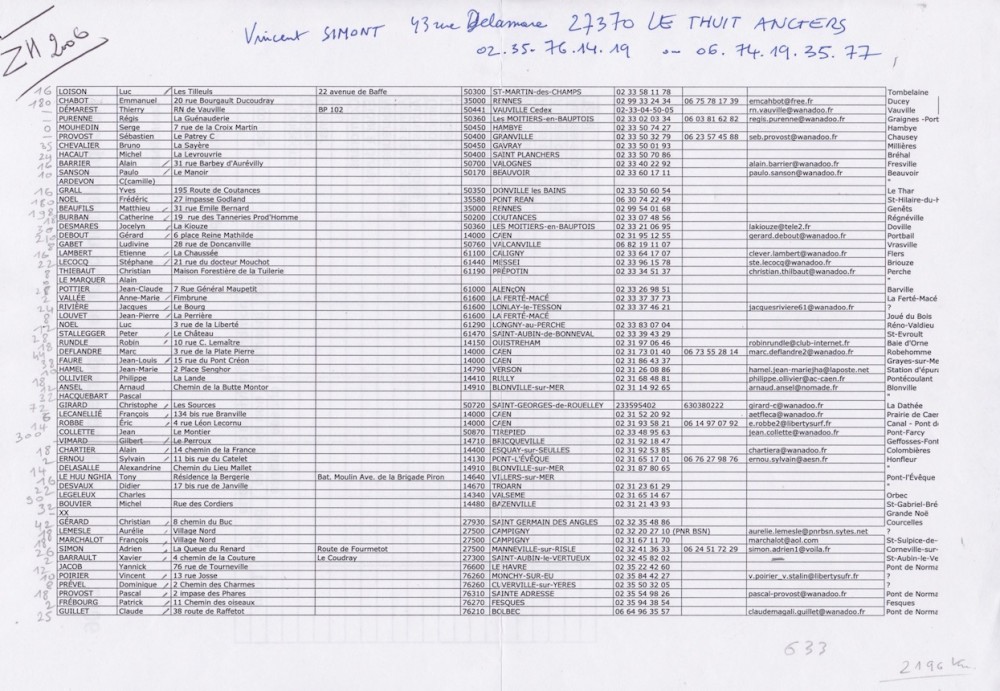 ZH 2006
Vincent SIMONT 43 rue Delamare 27370 LE THUIT ANGERS
02.35.76.14.19 ou 06.74.19.35.77
16 LOISON Luc Les Tilleuls 22 avenue de Baffe 50300 ST-MARTIN-des-CHAMPS 02 33 58 11 78 Tombelaine
180 CHABOT Emmanuel 20 rue Bourgault Ducoudray 35000 RENNES 02 99 33 24 34 06 75 78 17 39 emcahbot@free.fr Ducey
DÉMAREST Thierry RN de Vauville BP 102 50441 VAUVILLE Cedex 02-33-04-50-05 rn.vauville@wanadoo.fr Vauville
PURENNE Régis La Guénauderie 50360 Les MOITIERS-en-BAUPTOIS 02 33 02 03 34 06 03 81 62 82 regis.purenne@wanadoo.fr Graignes -Port
MOUHEDIN Serge 7 rue de la Croix Martin 50450 HAMBYE 02 33 50 74 27 Hambye
PROVOST Sébastien Le Patrey C 50400 GRANVILLE 02 33 50 32 79 06 23 57 45 88 seb.provost@wanadoo.fr Chausey
35 CHEVALIER Bruno La Sayère 50450 GAVRAY 02 33 50 01 93 Millières
24 HACAUT Michel La Levrouvrie 50400 SAINT PLANCHERS 02 33 50 70 86 Bréhal
16 BARRIER Alain 31 rue Barbey d'Aurévilly 50700 VALOGNES 02 33 40 22 92 alain.barrier@wanadoo.fr Fresville
10 SANSON Paulo Le Manoir 50170 BEAUVOIR 02 33 60 17 11 paulo.sanson@wanadoo.fr Beauvoir
ARDEVON C(camille) "
16 GRALL Yves 195 Route de Coutances 50350 DONVILLE les BAINS 02 33 50 60 54 Le Thar
NOEL Frédéric 27 impasse Godland 35580 PONT REAN 06 30 74 22 49 St-Hilaire-du-H
BEAUFILS Matthieu 31 rue Emile Bernard 35000 RENNES 02 99 54 01 68 Genêts
BURBAN Catherine 19 rue des Tanneries Prod'Homme 50200 COUTANCES 02 33 07 48 56 Régnéville
DESMARES Jocelyn La Kiouze 50360 LES MOITIERS-en-BAUPTOIS 02 33 21 06 95 lakiouze@tele2.fr Doville
DEBOUT Gérard 6 place Reine Mathilde 14000 CAEN 02 31 95 12 55 gerard.debout@wanadoo.fr Portbail
GABET Ludivine 28 rue de Doncanville 50760 VALCANVILLE 06 82 19 11 07 Vrasville
LAMBERT Etienne La Chaussée 61100 CALIGNY 02 33 64 17 07 clever.lambert@wanadoo.fr Flers
22 LECOCQ Stéphane 21 rue du docteur Mouchot 61440 MESSEI 02 33 96 15 78 ste.lecocq@wanadoo.fr Briouze
THIEBAUT Christian Maison Forestière de la Tuilerie 61190 PRÉPOTIN 02 33 34 51 37 christian.thilbaut@wanadoo.fr Perche
LE MARQUER Alain "
POTTIER Jean-Claude 7 Rue Général Maupetit 61000 ALENçON 02 33 26 98 51 Barville
VALLÉE Anne-Marie Fimbrune 61600 LA FERTÉ-MACÉ 02 33 37 37 73 La Ferté-Macé
RIVIÈRE Jacques Le Bourg 61600 LONLAY-le-TESSON 02 33 37 46 21 jacquesriviere61@wanadoo.fr ?
LOUVET Jean-Pierre La Perrière 61600 LA FERTÉ-MACÉ Joué du Bois
NOEL Luc 3 rue de la Liberté 61290 LONGNY-au-PERCHE 02 33 83 07 04 Réno-Valdieu
STALLEGGER Peter Le Château 61470 SAINT-AUBIN-de-BONNEVAL 02 33 39 43 29 St-Evroult
RUNDLE Robin 10 rue C. Lemaître 14150 OUISTREHAM 02 31 97 06 46 robinrundle@club-internet.fr Baie d'Orne
DEFLANDRE Marc 3 rue de la Plate Pierre 14000 CAEN 02 31 73 01 40 06 73 55 28 14 marc.deflandre2@wanadoo.fr Robehomme
FAURE Jean-Louis 15 rue du Pont Créon 14000 CAEN 02 31 86 43 37 Grayes-sur-Me
HAMEL Jean-Marie 2 Place Senghor 14790 VERSON 02 31 26 08 86 hamel.jean-mariejha@laposte.net Station d'épur
OLLIVIER Philippe La Lande 14410 RULLY 02 31 68 48 81 philippe.ollivier@ac-caen.fr Pontécoulant
ANSEL Arnaud Chemin de la Butte Montor 14910 BLONVILLE-sur-MER 02 31 14 92 65 arnaud.ansel@nomade.fr Blonville
HACQUEBART Pascal "
72 GIRARD Christophe Les Sources 50720 SAINT-GEORGES-de-ROUELLEY 233595402 630380222 girard-c@wanadoo.fr La Dathée
LECANELLIÉ François 134 bis rue Branville 14000 CAEN 02 31 52 20 92 aetfleca@wanadoo.fr Prairie de Caer
14 ROBBE Éric 4 rue Léon Lecornu 14000 CAEN 02 31 93 58 21 06 14 97 07 92 e.robbe2@libertysurf.fr Canal - Pont de
300 COLLETTE Jean Le Montier 50870 TIREPIED 02 33 48 95 63 jean.collette@wanadoo.fr Pont-Farcy
VIMARD Gilbert Le Perroux 14710 BRICQUEVILLE 02 31 92 18 47 Geffosses-Font
18 CHARTIER Alain 14 chemin de la France 14400 ESQUAY-sur-SEULLES 02 31 92 53 85 chartiera@wanadoo.fr Colombières
ERNOU Sylvain 11 bis rue du Catelet 14130 PONT-L'ÉVÊQUE 02 31 65 17 01 06 76 27 98 76 ernou.sylvain@aesn.fr Honfleur
14 DELASALLE Alexandrine Chemin du Lieu Mallet 14910 BLONVILLE-sur-MER 02 31 87 80 65 "
LE HUU NGHIA Tony Résidence la Bergerie Bat. Moulin Ave. de la Brigade Piron 14640 VILLERS-sur-MER Pont-l'Évêque
DESVAUX Didier 17 bis rue de Janville 14670 TROARN 02 31 23 61 29 "
LEGELEUX Charles 14340 VALSEME 02 31 65 14 67 Orbec
32 BOUVIER Michel Rue des Cordiers 14480 BAZENVILLE 02 31 21 43 93 St-Gabriel-Bré
XX Grande Noë
42 GÉRARD Christian 8 chemin du Buc 27930 SAINT GERMAIN DES ANGLES 02 32 35 48 86 Courcelles
LEMESLE Aurélie Village Nord 27500 CAMPIGNY 02 32 20 27 10 (PNR BSN) aurelie.lemesle@pnrbsn.sytes.net ?
18 MARCHALOT François Village Nord 27500 CAMPIGNY 02 31 67 11 70 marchalot@aol.com St-Sulpice-de-
26 SIMON Adrien La Queue du Renard Route de Fourmetot 27500 MANNEVILLE-sur-RISLE 02 32 41 36 33 06 24 51 72 29 simon.adrien1@voila.fr Corneville-sur-
BARRAULT Xavier 4 chemin de la Couture Le Coudray 27300 SAINT-AUBIN-le-VERTUEUX 02 32 45 82 02 St-Aubin-le-Ve
12 JACOB Yannick 76 rue de Tourneville 76600 LE HAVRE 02 35 22 42 60 Pont de Norma
POIRIER Vincent 13 rue Josse 76260 MONCHY-SUR-EU 02 35 84 42 27 v.poirier_v.stalin@libertysufr.fr ?
PRÉVEL Dominique 2 Chemin des Charmes 76260 CUVERVILLE-sur-YERES 02 35 50 32 05 ?
18 PROVOST Pascal 2 impasse des Phares 76310 SAINTE ADRESSE 02 35 54 98 26 pascal-provost@wanadoo.fr Pont de Norma
2 FRÉBOURG Patrick 11 Chemin des oiseaux 76270 FESQUES 02 35 94 38 54 Fesques
25 GUILLET Claude 38 route de Raffetot 76210 BOLBEC 06 64 96 35 57 claudemagali.guillet@wanadoo.fr Pont de Norma
633
2196 Km